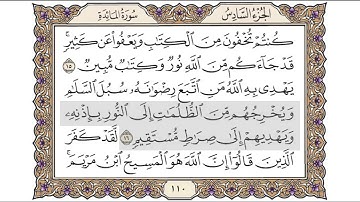 الجزء السادس سورة المائدة
كُنتُمْ تُخْفُونَ مِنَ الْكِتَٰبِ وَيَعْفُوا۟ عَن كَثِيرٍ ۚ
قَدْ جَآءَكُم مِّنَ اللَّهِ نُورٌ وَكِتَٰبٌ مُّبِينٌ ١٥
يَهْدِى بِهِ اللَّهُ مَنِ اتَّبَعَ رِضْوَٰنَهُۥ سُبُلَ السَّلَٰمِ
وَيُخْرِجُهُم مِّنَ الظُّلُمَٰتِ إِلَى النُّورِ بِإِذْنِهِۦ
وَيَهْدِيهِمْ إِلَىٰ صِرَٰطٍ مُّسْتَقِيمٍ ١٦ لَّقَدْ كَفَرَ
الَّذِينَ قَالُوٓا۟ إِنَّ اللَّهَ هُوَ الْمَسِيحُ ابْنُ مَرْيَمَ ۚ
١١٠